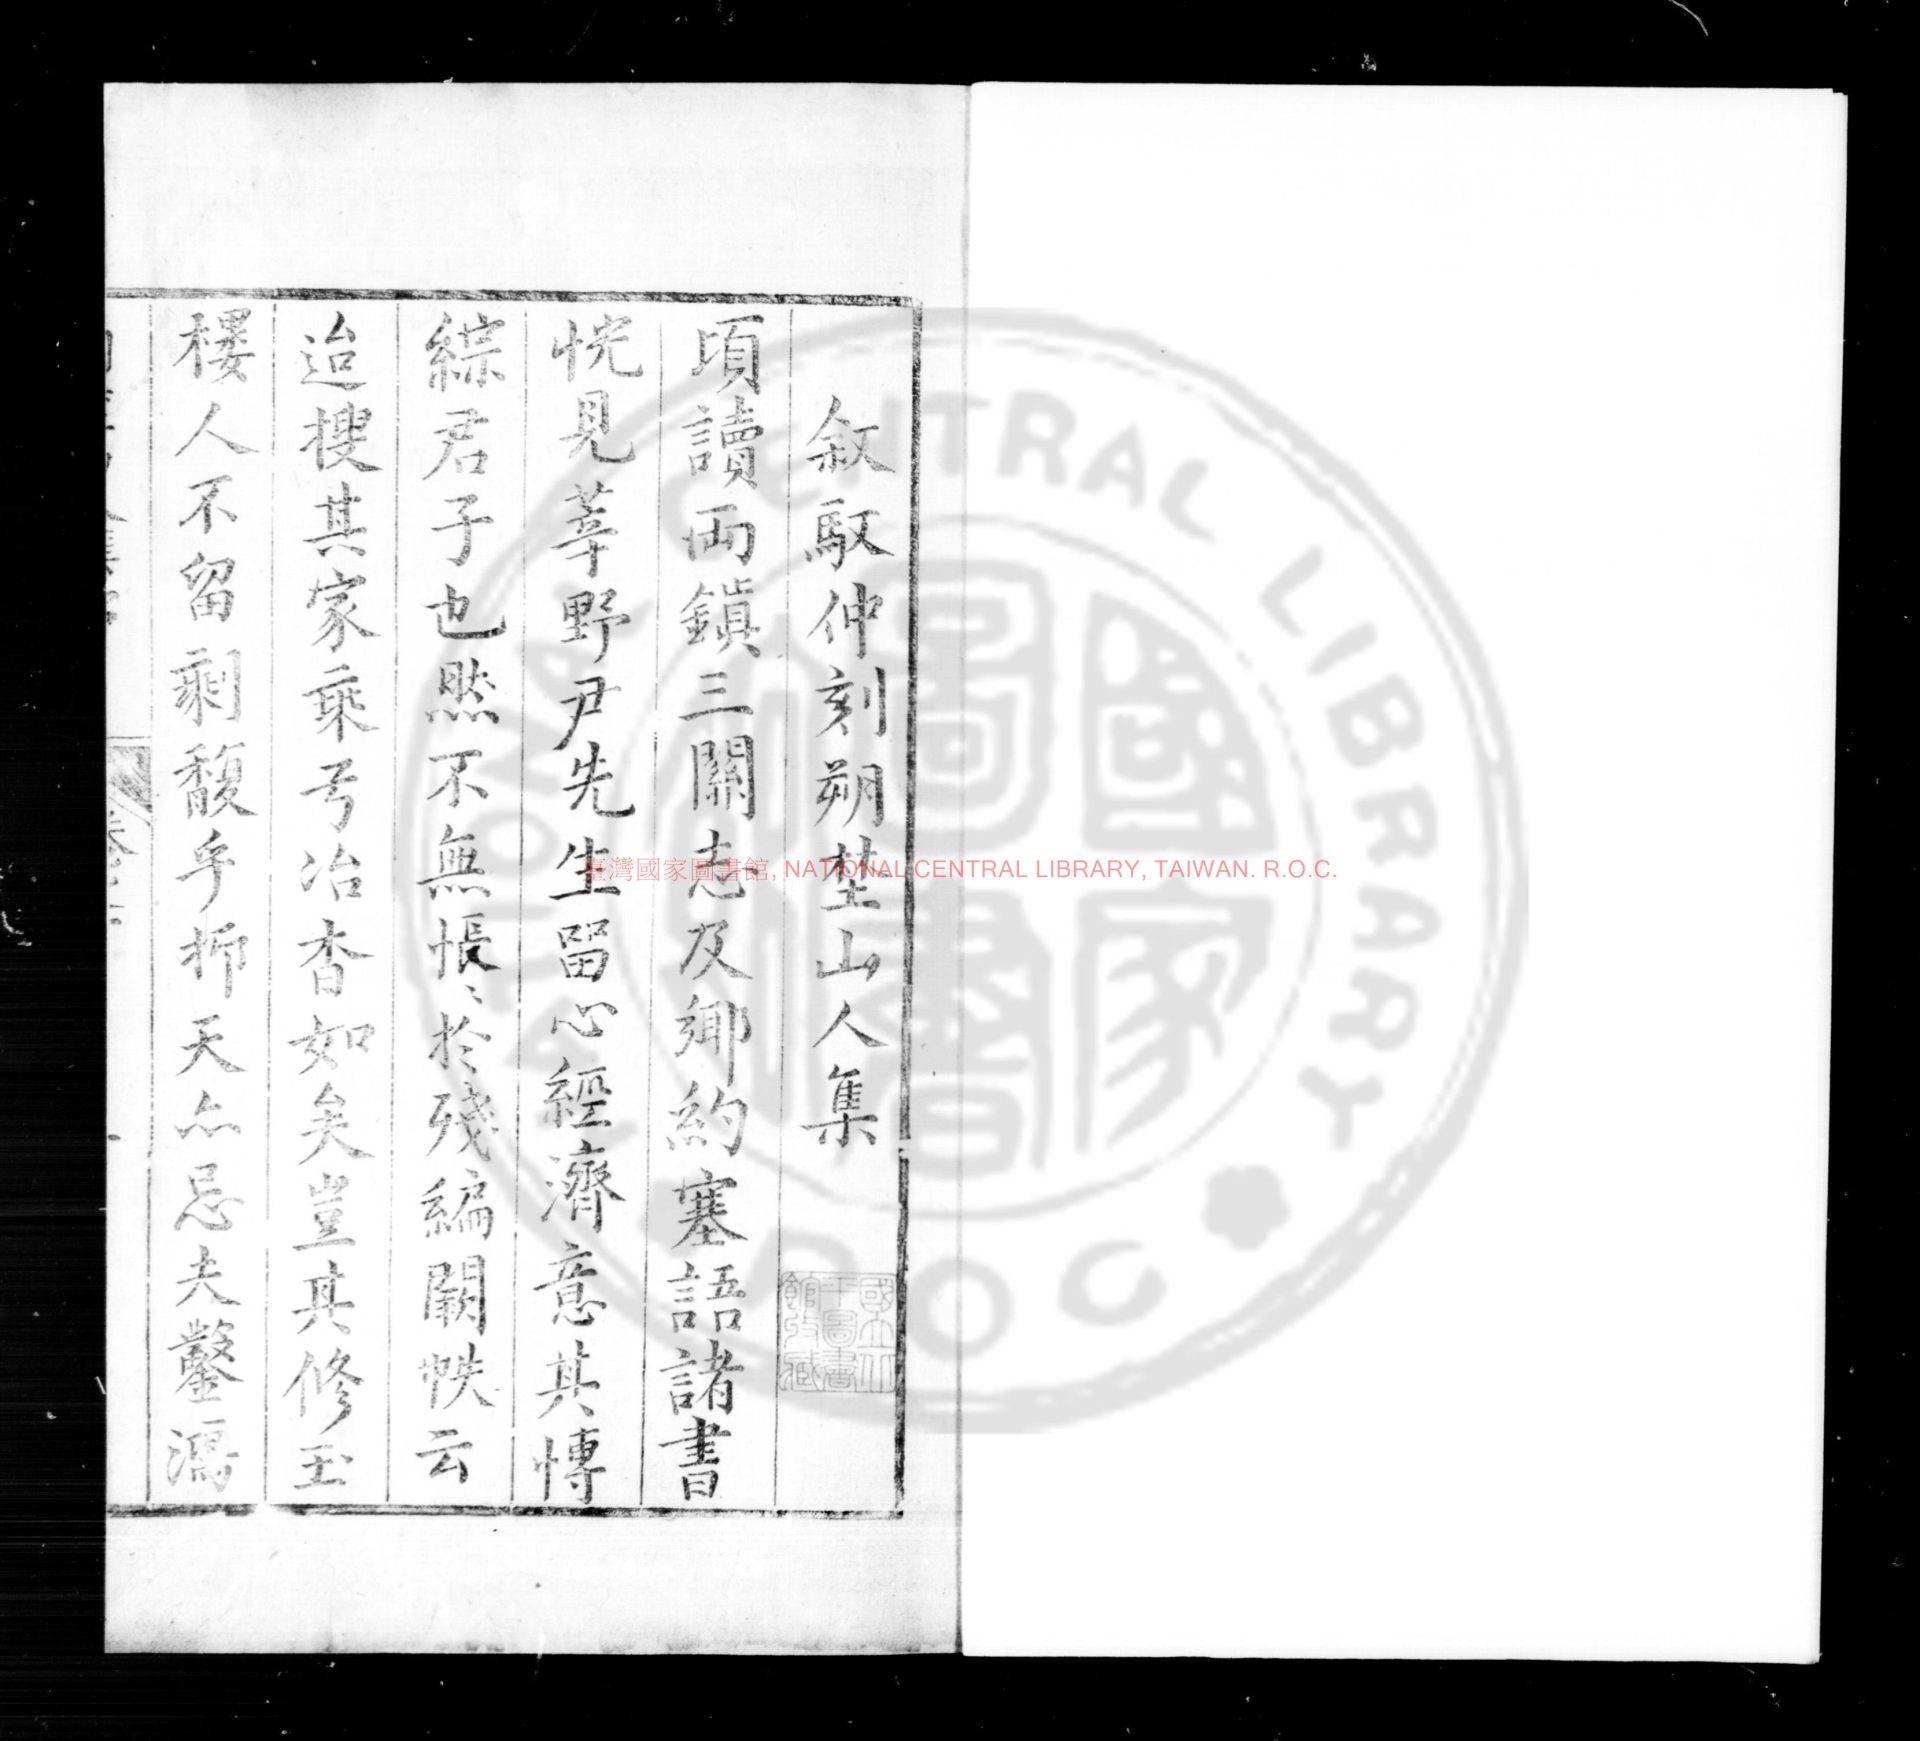 敘馭仲刻朔埜山人集
頃讀両鎮三關志及鄉約塞語諸書
恍見莘野尹先生留心經濟意其博
綜君子也然不無悵〻於殘編闕帙云
迨搜其家乘弓冶杳如矣豈其修玉
樓人不留剩馥乎抑天亦忌夫鑿瀉
臺灣國家圖書館, NATIONAL CENTRAL LIBRARY, TAIWAN. R.O.C.
國家圖書
NATIONAL CENTRAL LIBRARY
R.O.C.